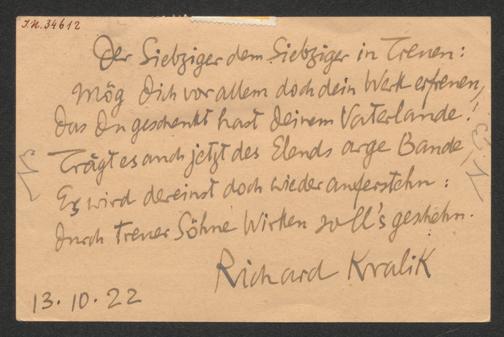 I.N. 34612
Der Siebziger dem Siebziger in Treuen:
Mög Dich vor allem doch dein Werk erfreuen,
Das Du geschenkt hast Deinem Vaterlande!
Trägt es auch jetzt des Elends arge Bande
Es wird dereinst doch wieder auferstehn:
Durch treuer Söhne Wirken soll's geschehn.
Richard Kralik
13.10.22